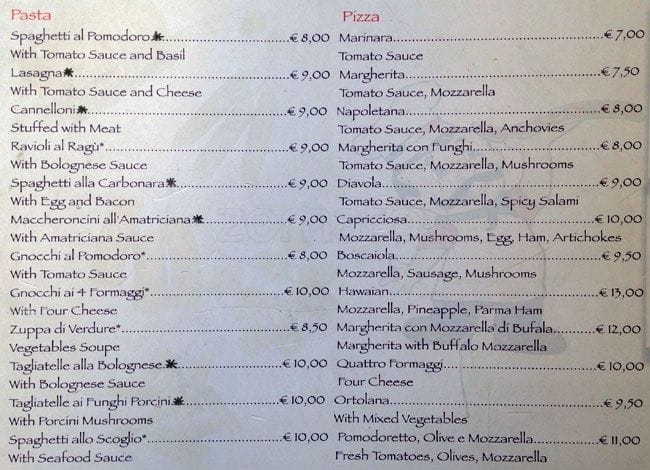 Pasta
Spaghetti al Pomodoro*..........€ 8,00
With Tomato Sauce and Basil
Lasagna*..........€ 9,00
With Tomato Sauce and Cheese
Cannelloni*..........€ 9,00
Stuffed with Meat
Ravioli al Ragù*..........€ 9,00
With Bolognese Sauce
Spaghetti alla Carbonara*..........€ 9,00
With Egg and Bacon
Maccheroncini all'Amatriciana*..........€ 9,00
With Amatriciana Sauce
Gnocchi al Pomodoro*..........€ 8,00
With Tomato Sauce
Gnocchi ai 4 Formaggi*..........€ 10,00
With Four Cheese
Zuppa di Verdure*..........€ 8,50
Vegetables Soupe
Tagliatelle alla Bolognese*..........€ 10,00
With Bolognese Sauce
Tagliatelle ai Funghi Porcini*..........€ 10,00
With Porcini Mushrooms
Spaghetti allo Scoglio*..........€ 10,00
With Seafood Sauce
Pizza
Marinara..........€ 7,00
Tomato Sauce
Margherita..........€ 7,50
Tomato Sauce, Mozzarella
Napoletana..........€ 8,00
Tomato Sauce, Mozzarella, Anchovies
Margherita con Funghi..........€ 8,00
Tomato Sauce, Mozzarella, Mushrooms
Diavola..........€ 9,00
Tomato Sauce, Mozzarella, Spicy Salami
Capricciosa..........€ 10,00
Mozzarella, Mushrooms, Egg, Ham, Artichokes
Boscaiola..........€ 9,50
Mozzarella, Sausage, Mushrooms
Hawaian..........€ 13,00
Mozzarella, Pineapple, Parma Ham
Margherita con Mozzarella di Bufala..........€ 12,00
Margherita with Buffalo Mozzarella
Quattro Formaggi..........€ 10,00
Four Cheese
Ortolana..........€ 9,50
With Mixed Vegetables
Pomodoretto, Olive e Mozzarella..........€ 11,00
Fresh Tomatoes, Olives, Mozzarella